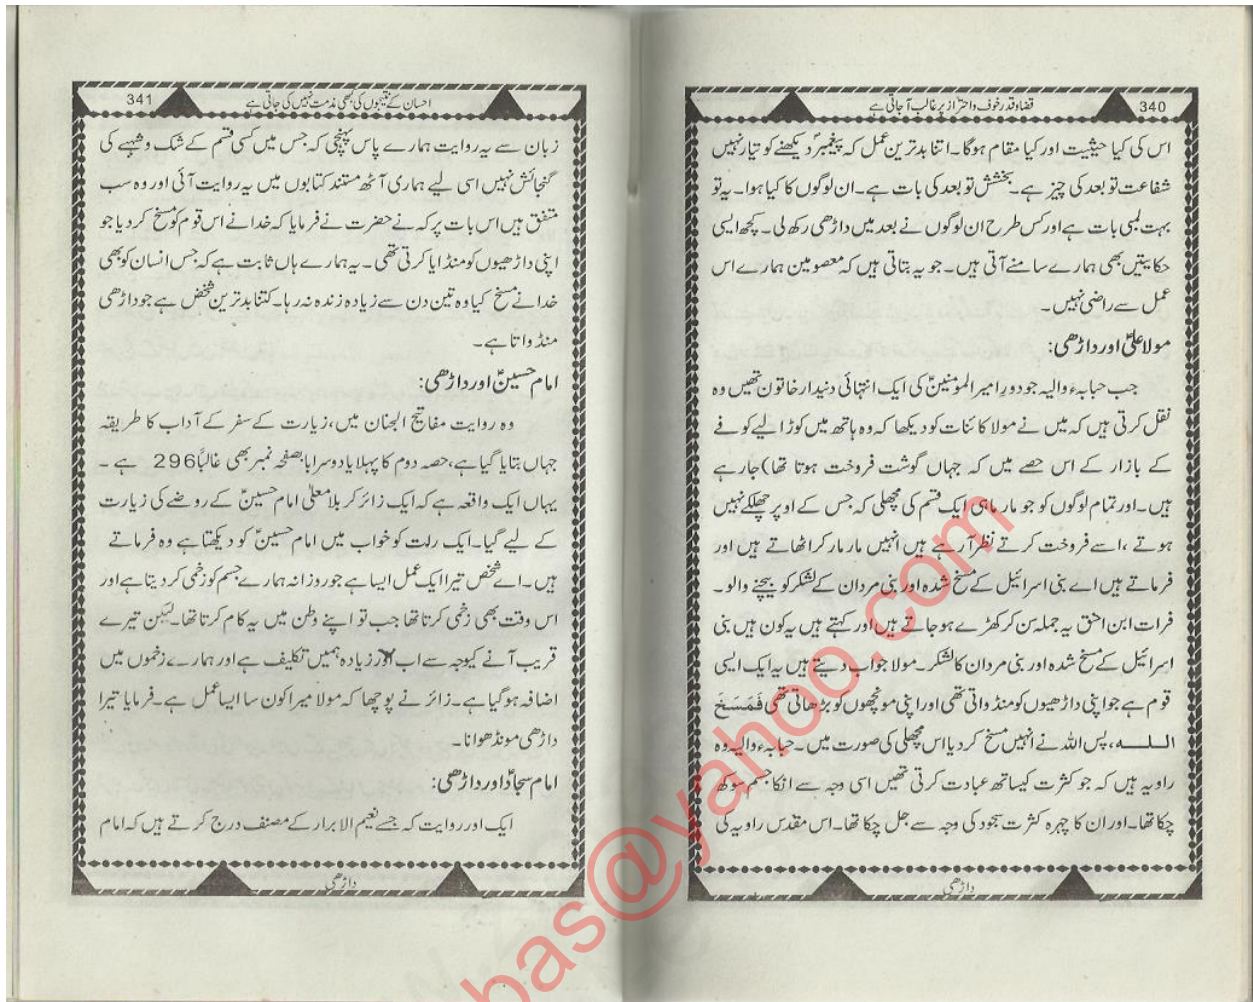 340
قضا و قدر خوف و احتراز پر غالب آ جاتی ہے
اس کی کیا حیثیت اور کیا مقام ہوگا۔ اتنا بدترین عمل کہ پیغمبرؐ دیکھنے کو تیار نہیں
شفاعت تو بعد کی چیز ہے۔ بخشش تو بعد کی بات ہے۔ ان لوگوں کا کیا ہوا۔ یہ تو
بہت لمبی بات ہے اور کس طرح ان لوگوں نے بعد میں داڑھی رکھ لی۔ کچھ ایسی
حکایتیں بھی ہمارے سامنے آتی ہیں۔ جو یہ بتاتی ہیں کہ معصومین ہمارے اس
عمل سے راضی نہیں۔
مولا علیؑ اور داڑھی:
جب حبابہء والیہ جو دورِ امیر المومنینؑ کی ایک انتہائی دنیدار خاتون تھیں وہ
نقل کرتی ہیں کہ میں نے مولا کائنات کو دیکھا کہ وہ ہاتھ میں کوڑا لیے کوفے
کے بازار کے اس حصے میں کہ جہاں گوشت فروخت ہوتا تھا) جا رہے
ہیں۔ اور تمام لوگوں کو جو مار ماہی ایک قسم کی مچھلی کہ جس کے اوپر چھلکے نہیں
ہوتے، اسے فروخت کرتے نظر آ رہے ہیں انہیں مار مار کر اٹھاتے ہیں اور
فرماتے ہیں اے بنی اسرائیل کے مسخ شدہ اور بنی مردان کے لشکر کو بیچنے والو۔
فرات ابن احق یہ جملہ سن کر کھڑے ہو جاتے ہیں اور کہتے ہیں یہ کون ہیں بنی
اسرائیل کے مسخ شدہ اور بنی مردان کا لشکر۔ مولا جواب دیتے ہیں یہ ایک ایسی
قوم ہے جو اپنی داڑھیوں کو منڈواتی تھی اور اپنی مونچھوں کو بڑھاتی تھی فَمَسَخَ
اللہ، پس اللہ نے انہیں مسخ کر دیا اس مچھلی کی صورت میں۔ حبابہء والیہ وہ
راویہ ہیں کہ جو کثرت کیساتھ عبادت کرتی تھیں اسی وجہ سے انکا جسم سوکھ
چکا تھا۔ اور ان کا چہرہ کثرت سجود کی وجہ سے جل چکا تھا۔ اس مقدس راویہ کی
داڑھی
احسان کے نتیجوں کی بھی مذمت نہیں کی جاتی ہے
341
زبان سے یہ روایت ہمارے پاس پہنچی کہ جس میں کسی قسم کے شک و شبہے کی
گنجائش نہیں اسی لیے ہماری آٹھ مستند کتابوں میں یہ روایت آئی اور وہ سب
متفق ہیں اس بات پر کہ نے حضرت نے فرمایا کہ خدا نے اس قوم کو مسخ کر دیا جو
اپنی داڑھیوں کو منڈایا کرتی تھی۔ یہ ہمارے ہاں ثابت ہے کہ جس انسان کو بھی
خدا نے مسخ کیا وہ تین دن سے زیادہ زندہ نہ رہا۔ کتنا بدترین شخص ہے جو داڑھی
منڈواتا ہے۔
امام حسینؑ اور داڑھی:
وہ روایت مفاتیح الجنان میں، زیارت کے سفر کے آداب کا طریقہ
جہاں بتایا گیا ہے، حصہ دوم کا پہلا یا دوسرا باب صفحہ نمبر بھی غالباً 296 ہے۔
یہاں ایک واقعہ ہے کہ ایک زائر کربلا معلیٰ امام حسینؑ کے روضے کی زیارت
کے لیے گیا۔ ایک رات کو خواب میں امام حسینؑ کو دیکھتا ہے وہ فرماتے
ہیں۔ اے شخص تیرا ایک عمل ایسا ہے جو روزانہ ہمارے جسم کو زخمی کر دیتا ہے اور
اس وقت بھی زخمی کرتا تھا جب تو اپنے وطن میں یہ کام کرتا تھا۔ لیکن تیرے
قریب آنے کیوجہ سے اب اور زیادہ ہمیں تکلیف ہے اور ہمارے زخموں میں
اضافہ ہو گیا ہے۔ زائر نے پوچھا کہ مولا میرا کون سا ایسا عمل ہے۔ فرمایا تیرا
داڑھی مونڈھوانا۔
امام سجادؑ اور داڑھی:
ایک اور روایت کہ جسے نعیم الابرار کے مصنف درج کرتے ہیں کہ امام
داڑھی
bas@yahoo.com